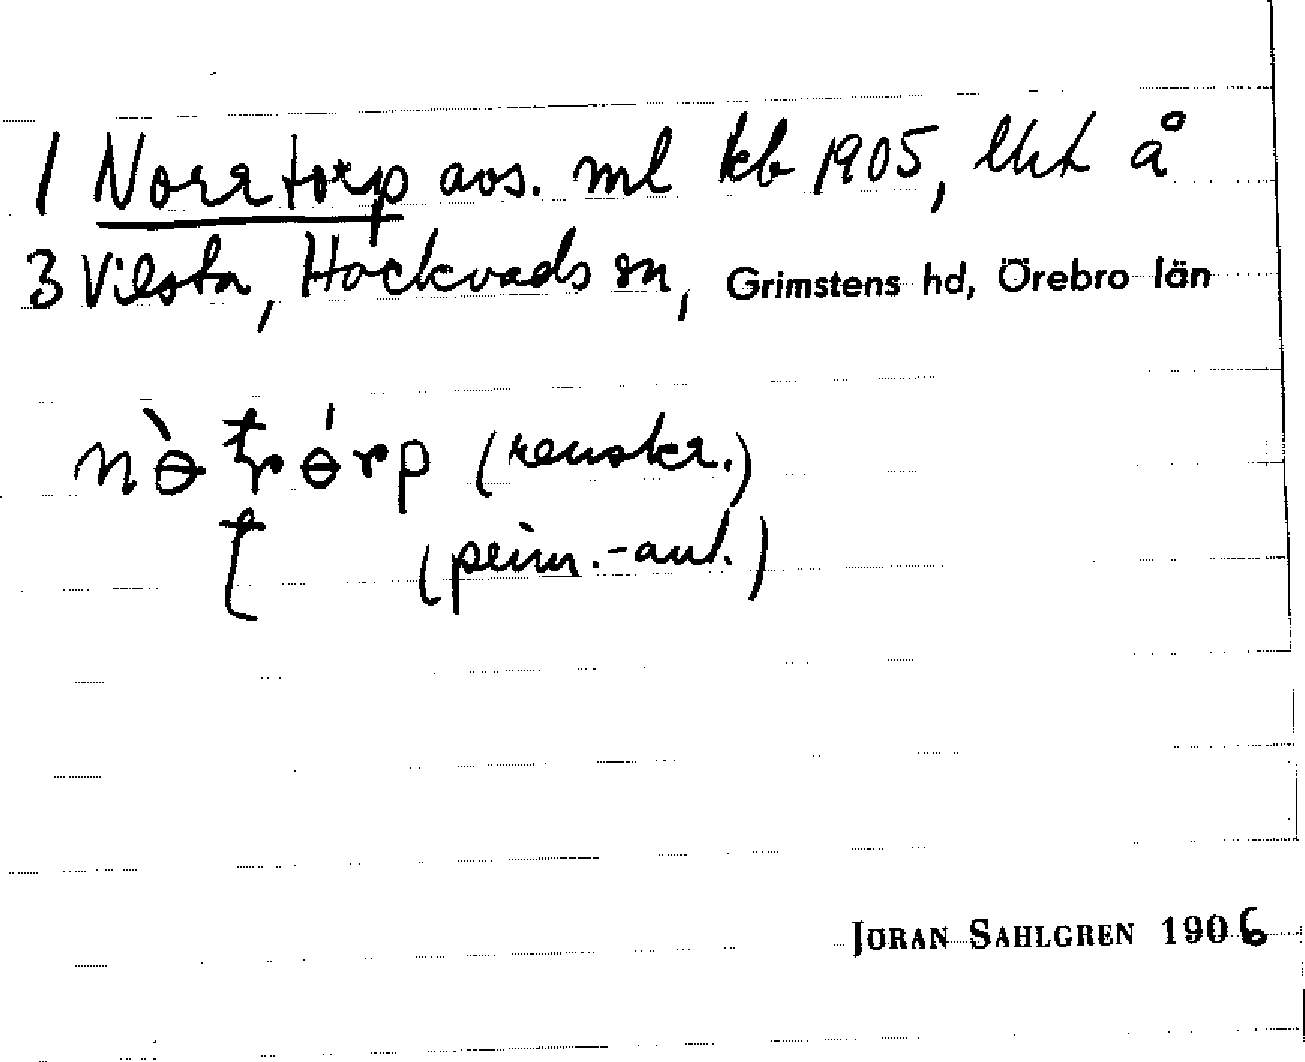 1 Norrtorp avs. ml kb 1905, lht å
3 Vilsta, Hackvads sn, Grimstens hd, Örebro län
(renskr.)
(prim.-ant.)
JÖRAN SAHLGREN 1906